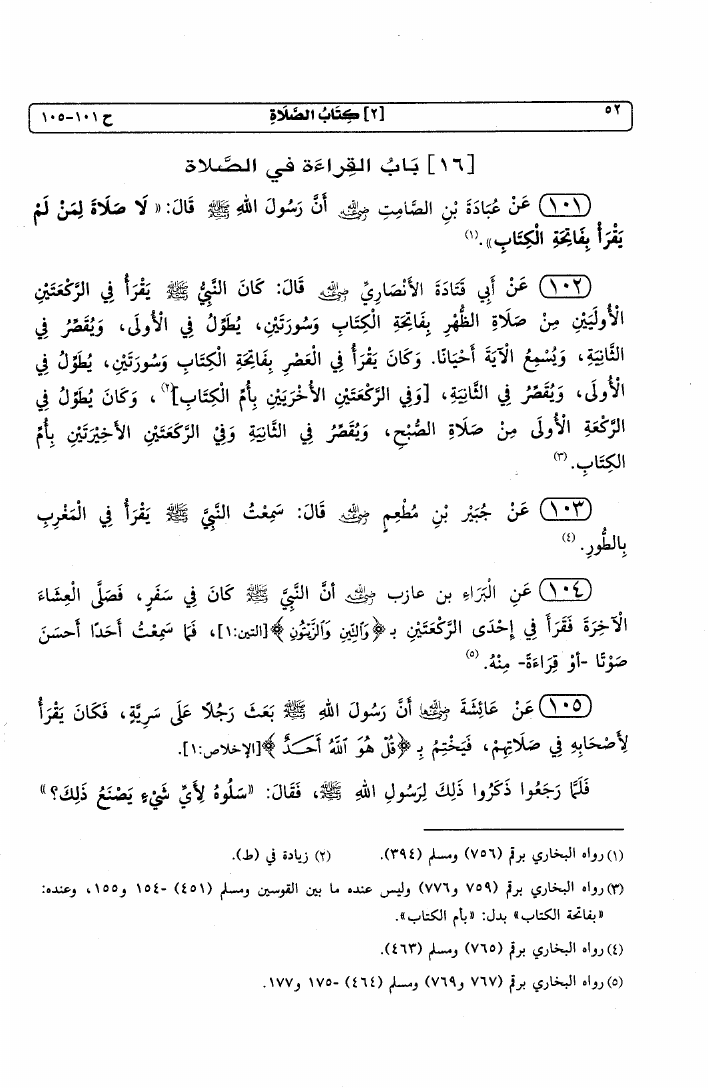 ٥٢ [٢] كِتَابُ الصَّلَاةِ ح ١٠١-١٠٥
[١٦] بَابُ القِراءَة في الصَّلاة
(١٠١) عَنْ عُبَادَةَ بْنِ الصَّامِتِ رضي الله عنه أَنَّ رَسُولَ اللهِ ﷺ قَالَ: «لَا صَلَاةَ لِمَنْ لَمْ
يَقْرَأْ بِفَاتِحَةِ الْكِتَابِ».(١)
(١٠٢) عَنْ أَبِي قَتَادَةَ الأَنْصَارِيِّ رضي الله عنه قَالَ: كَانَ النَّبِيُّ ﷺ يَقْرَأُ فِي الرَّكْعَتَيْنِ
الْأُولَيَيْنِ مِنْ صَلَاةِ الظُّهْرِ بِفَاتِحَةِ الْكِتَابِ وَسُورَتَيْنِ، يُطَوِّلُ فِي الْأُولَى، وَيُقَصِّرُ فِي
الثَّانِيَةِ، وَيُسْمِعُ الْآيَةَ أَحْيَانًا. وَكَانَ يَقْرَأُ فِي الْعَصْرِ بِفَاتِحَةِ الْكِتَابِ وَسُورَتَيْنِ، يُطَوِّلُ فِي
الْأُولَى، وَيُقَصِّرُ فِي الثَّانِيَةِ، [وَفِي الرَّكْعَتَيْنِ الْأُخْرَيَيْنِ بِأُمِّ الْكِتَابِ](٢)، وَكَانَ يُطَوِّلُ فِي
الرَّكْعَةِ الْأُولَى مِنْ صَلَاةِ الصُّبْحِ، وَيُقَصِّرُ فِي الثَّانِيَةِ وَفِيْ الرَّكْعَتَيْنِ الأَخِيْرَتَيْنِ بِأُمِّ
الكِتَابِ.(٣)
(١٠٣) عَنْ جُبَيْرِ بْنِ مُطْعِمٍ رضي الله عنه قَالَ: سَمِعْتُ النَّبِيَّ ﷺ يَقْرَأُ فِي الْمَغْرِبِ
بِالطُّورِ.(٤)
(١٠٤) عَنِ الْبَرَاءِ بن عازب رضي الله عنه أنَّ النَّبِيَّ ﷺ كَانَ فِي سَفَرٍ، فَصَلَّى الْعِشَاءَ
الْآخِرَةَ فَقَرَأَ فِي إِحْدَى الرَّكْعَتَيْنِ بـ ﴿وَٱلتِّينِ وَٱلزَّيْتُونِ﴾[التين:١]، فَمَا سَمِعْتُ أَحَدًا أَحسَنَ
صَوْتًا -أوْ قِرَاءَةً- مِنْهُ.(٥)
(١٠٥) عَنْ عَائِشَةَ رضي الله عنها أَنَّ رَسُولَ اللهِ ﷺ بَعَثَ رَجُلًا عَلَى سَرِيَّةٍ، فَكَانَ يَقْرَأُ
لِأَصْحَابِهِ فِي صَلَاتِهِمْ، فَيَخْتِمُ بِـ ﴿قُلْ هُوَ ٱللَّهُ أَحَدٌ﴾[الإخلاص:١].
فَلَمَّا رَجَعُوا ذَكَرُوا ذَلِكَ لِرَسُولِ اللهِ ﷺ، فَقَالَ: «سَلُوهُ لِأَيِّ شَيْءٍ يَصْنَعُ ذَلِكَ؟»
(١) رواه البخاري برقم (٧٥٦) ومسلم (٣٩٤). (٢) زيادة في (ط).
(٣) رواه البخاري برقم (٧٥٩ و٧٧٦) وليس عنده ما بين القوسين ومسلم (٤٥١) -١٥٤ و١٥٥، وعنده:
«بفاتحة الكتاب» بدل: «بأم الكتاب».
(٤) رواه البخاري برقم (٧٦٥) ومسلم (٤٦٣).
(٥) رواه البخاري برقم (٧٦٧ و٧٦٩) ومسلم (٤٦٤) -١٧٥ و١٧٧.